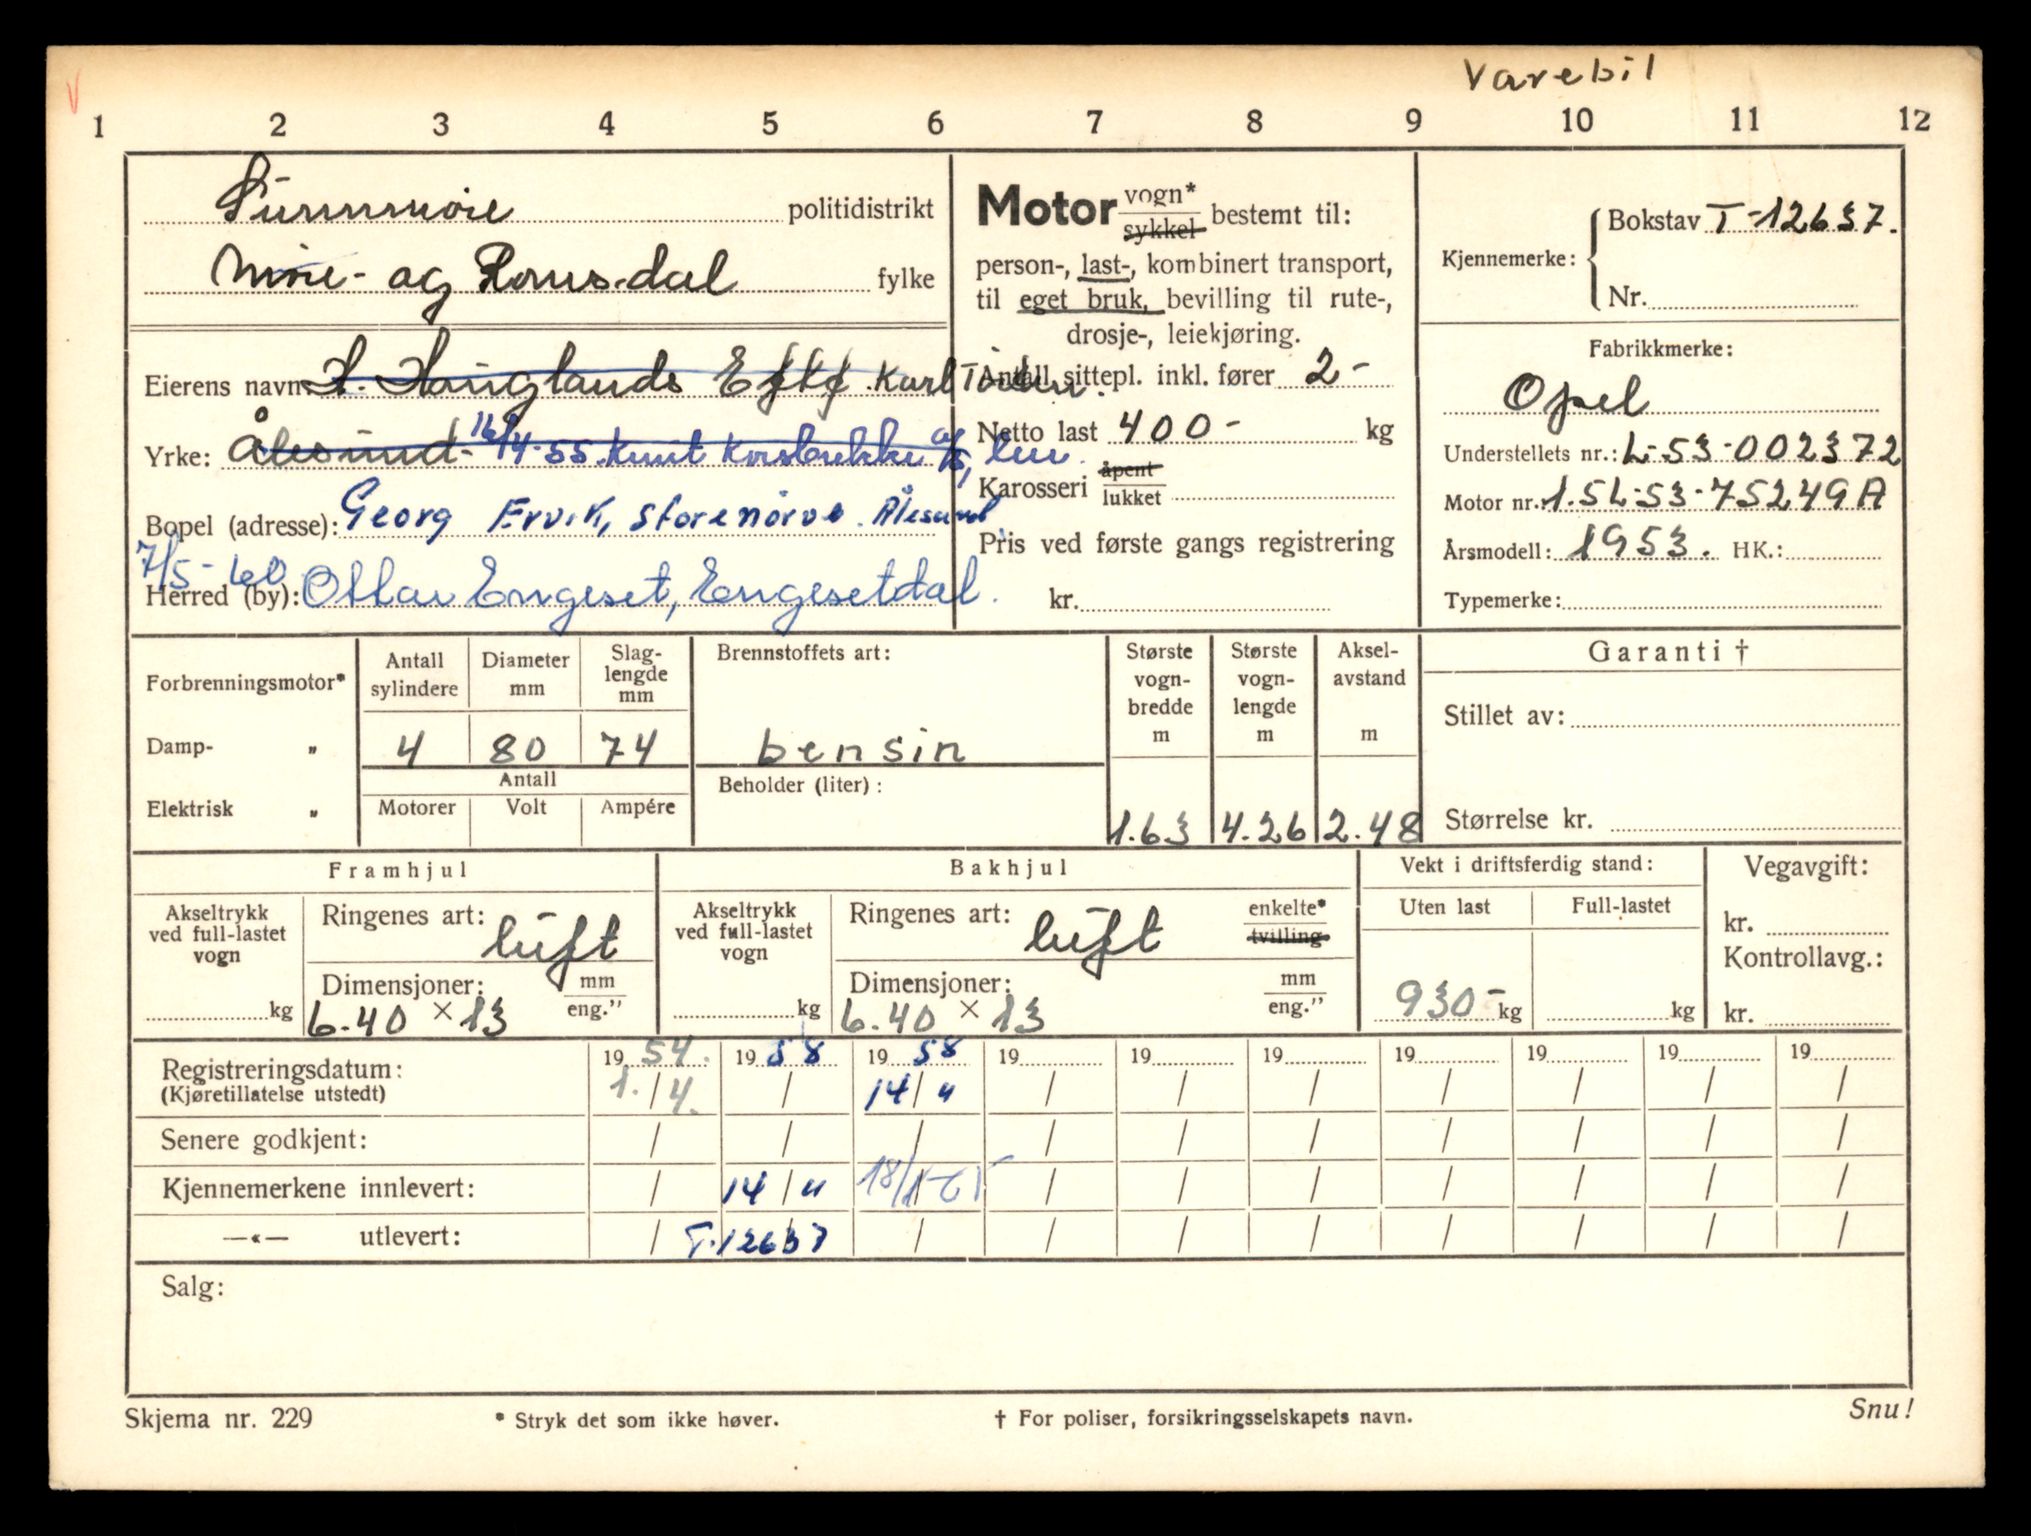 Varebil
1 2 3 4 5 6 7 8 9 10 11 12
Sunnmøre politidistrikt
Møre- og Romsdal fylke
Motor vogn* sykkel bestemt til:
person-, last-, kombinert transport,
til eget bruk, bevilling til rute-,
drosje-, leiekjøring.
Kjennemerke: Bokstav T-12637.
Nr.
Eierens navn: H. Hauglands Eftf Karl
Yrke: Ålesund. 16/4-55 Knut Korsbrekke
Bopel (adresse): Georg Ervik, Storenørve. Ålesund
7/5-60
Herred (by): Ottar Engeset, Engesetdal.
Antall sittepl. inkl. fører 2-
Netto last 400- kg
Karosseri åpent lukket
Pris ved første gangs registrering
kr.
Fabrikkmerke:
Opel
Understellets nr.: L-53-002372
Motor nr.: 1.5L-53-75249A
Årsmodell: 1953. HK.:
Typemerke:
Forbrenningsmotor*
Damp- "
Elektrisk "
Antall sylindere Diameter mm Slag-lengde mm
4 80 74
Antall
Motorer Volt Ampére
Brennstoffets art:
bensin
Beholder (liter):
Største vogn-bredde m Største vogn-lengde m Aksel-avstand m
1.63 4.26 2.48
Garanti †
Stillet av:
Størrelse kr.
Framhjul
Akseltrykk ved full-lastet vogn
kg
Ringenes art: luft
Dimensjoner: mm eng."
6.40 × 13
Bakhjul
Akseltrykk ved full-lastet vogn
kg
Ringenes art: luft enkelte* tvilling
Dimensjoner: mm eng."
6.40 × 13
Vekt i driftsferdig stand:
Uten last Full-lastet
930- kg kg
Vegavgift:
kr.
Kontrollavg.:
kr.
Registreringsdatum: 19 54. 19 58 19 58 19 19 19 19 19 19 19
(Kjøretillatelse utstedt) 1./4. / 14/11 / / / / / / /
Senere godkjent: / / / / / / / / / /
Kjennemerkene innlevert: / 14/11 18/1-61 / / / / / / /
—«— utlevert: / T-12637 / / / / / / / /
Salg:
Skjema nr. 229
* Stryk det som ikke høver.
† For poliser, forsikringsselskapets navn.
Snu!